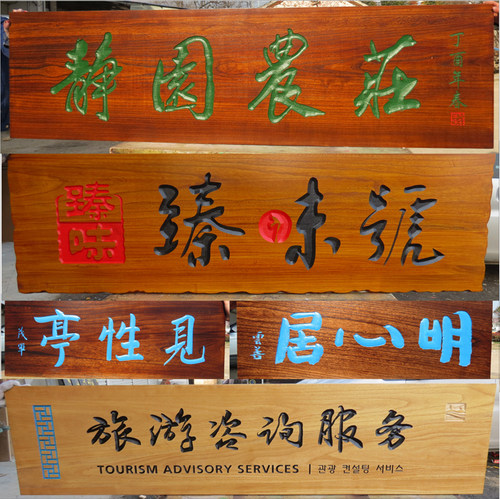 静園農莊
丁酉年春
臻味
臻味號
見性亭
明心居
雲善
旅游咨询服务
TOURISM ADVISORY SERVICES | 관광 컨설팅 서비스